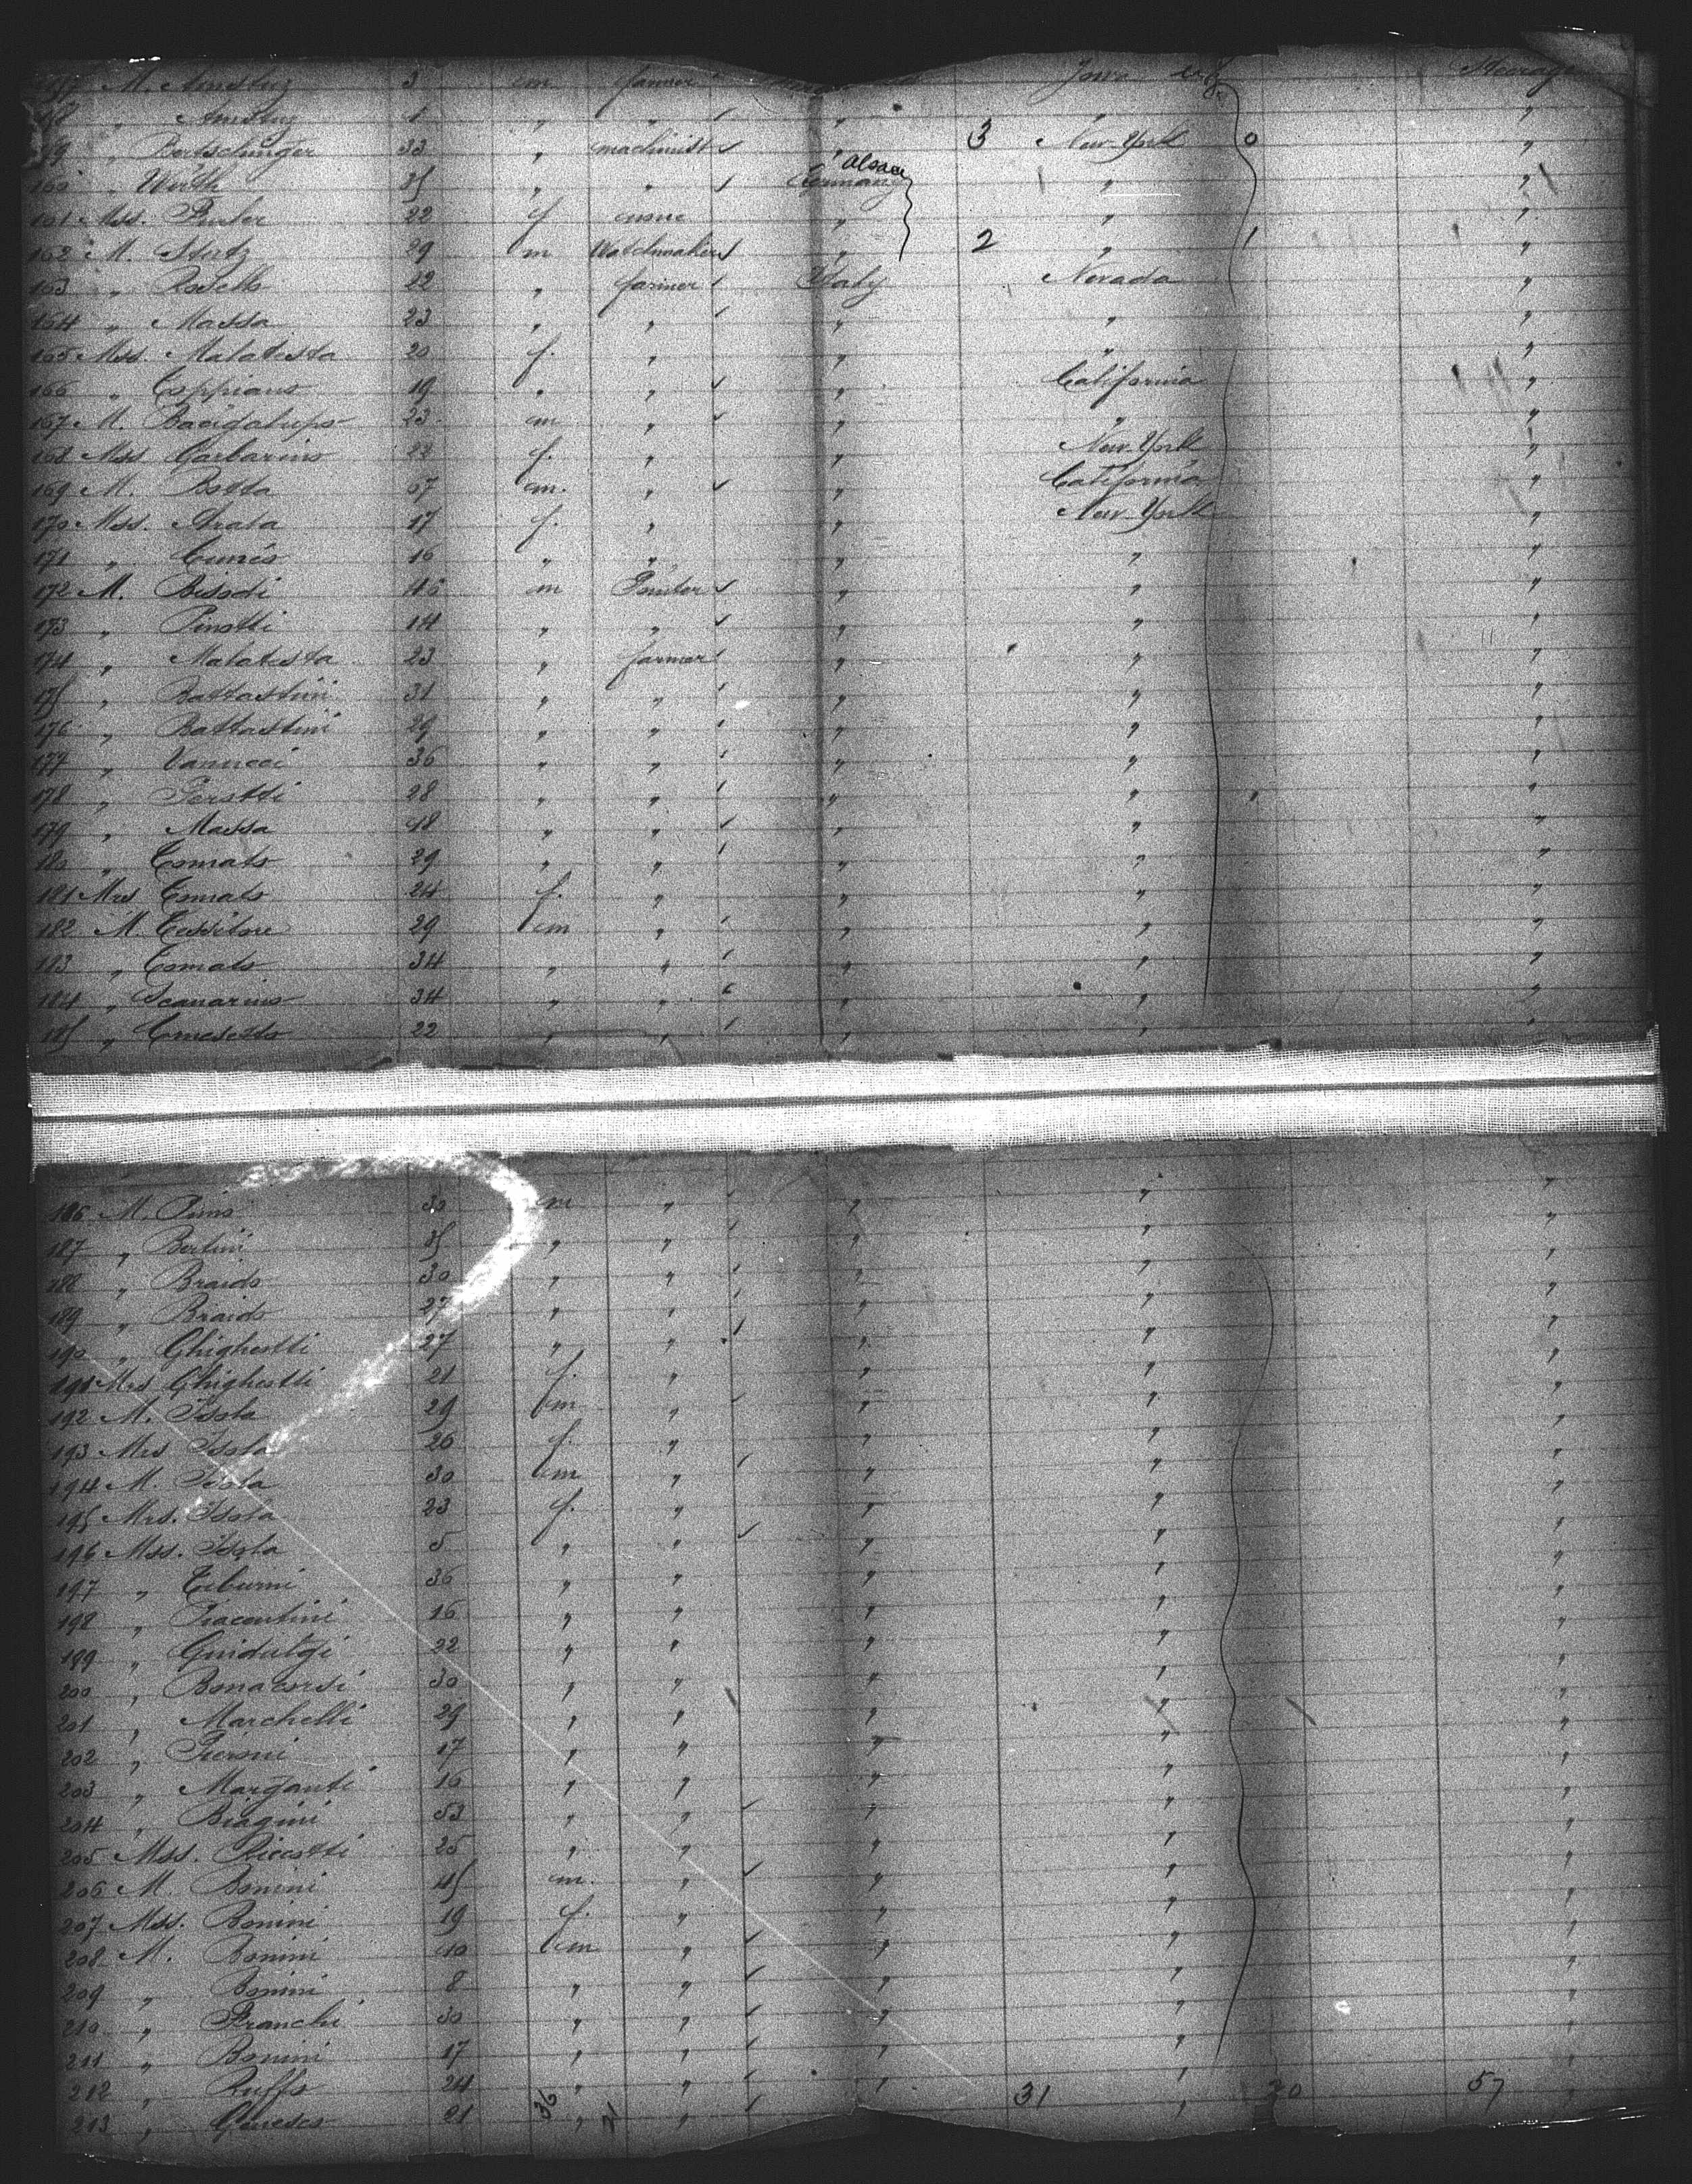 M. Amstuz 3 m farmer Iowa Steerage
" Amstuz 1 " " " " "
" Bertschinger 33 " machinist " 3 New-York 0 "
160 " Wirth 35 " " Germany Alsace " "
161 Mss. 22 f. none " " "
162 M. Stutz 29 m Watchmaker " 2 " 1 "
163 " Rosello 22 " farmer Italy Nevada "
164 " Massa 23 " " " " "
165 Mss. Malatesta 20 f. " " " "
166 " Coppiano 19 " " " California "
167 M. Bacigalupo 23 m " " " "
168 Mss Garbarino 22 f. " " New-York "
169 M. Botta 57 m. " " California "
170 Mss. Arata 17 f. " " New-York "
171 " Cuneo 16 " " " " "
172 M. Bisodi 46 m Painter " " "
173 " Pinotti 14 " " " " "
174 " Malatesta 23 " farmer " " "
175 " Battastini 31 " " " " "
176 " Battastini 29 " " " " "
177 " Vanucci 36 " " " " "
178 " Perotti 28 " " " " "
179 " Massa 48 " " " " "
180 " Tomato 29 " " " " "
181 Mrs Tomato 24 f. " " " "
182 M. Tessitore 29 m " " " "
183 " Tomato 34 " " " " "
184 " Scanarino 34 " " " " "
185 " 22 " " " " "
186 M. Pino 30 m " " " "
187 " Bertini 35 " " " " "
188 " Braido 30 " " " " "
189 " Braido 27 " " " " "
190 " Ghighetti 27 " " " " "
191 Mrs Ghighetti 21 f. " " " "
192 M. Isola 29 m " " " "
193 Mrs Isola 26 f. " " " "
194 M. Isola 30 m " " " "
195 Mrs. Isola 23 f. " " " "
196 Mss. Isola 5 " " " " "
197 " Tiburni 36 " " " " "
198 " Piacentini 16 " " " " "
199 " 22 " " " " "
200 " Bonacorsi 30 " " " " "
201 " Marchelli 29 " " " " "
202 " Pieroni 17 " " " " "
203 " Marganti 16 " " " " "
204 " Biagini 53 " " " " "
205 Mss. Ricotti 25 " " " " "
206 M. Bonini 45 m. " " " "
207 Mss. Bonini 19 f. " " " "
208 M. Bonini 10 m " " " "
209 " Bonini 8 " " " " "
210 " Franchi 30 " " " " "
211 " Bonini 17 " " " " "
212 " Ruffo 24 " " " 31 " 20 57 "
213 " Genesio 21 36 " 21 " " " "